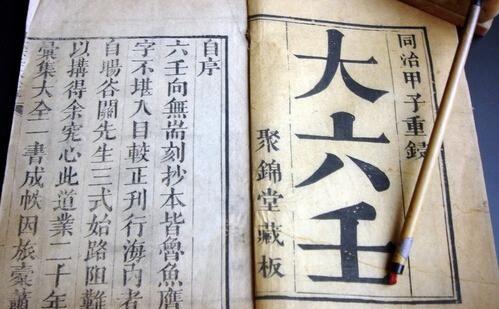 同治甲子重鐫
大六壬
聚錦堂藏板
自序
六壬向無耑刻抄本皆魯魚贗
字不堪入目較正刊行海內者
自塲谷關先生三式始路阻難
以搆得余究心此道業二十年
彙集大全一書成帙因旅橐蕭